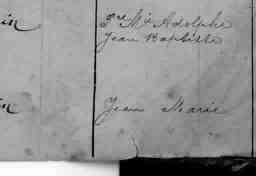 in
Sr Me Adolphe
Jean Baptiste
in
Jean Marie